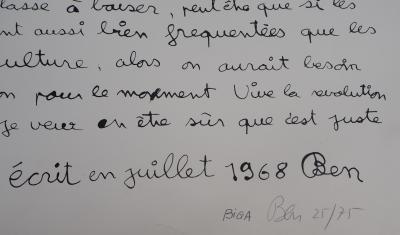 lasse à baiser, peut être que si les
nt aussi bien frequentées que les
ulture, alors on aurait besoin
on pour le moment Vive la revolution
Je veux en être sûr que c'est juste
écrit en juillet 1968 Ben
BIGA Ben 25/75